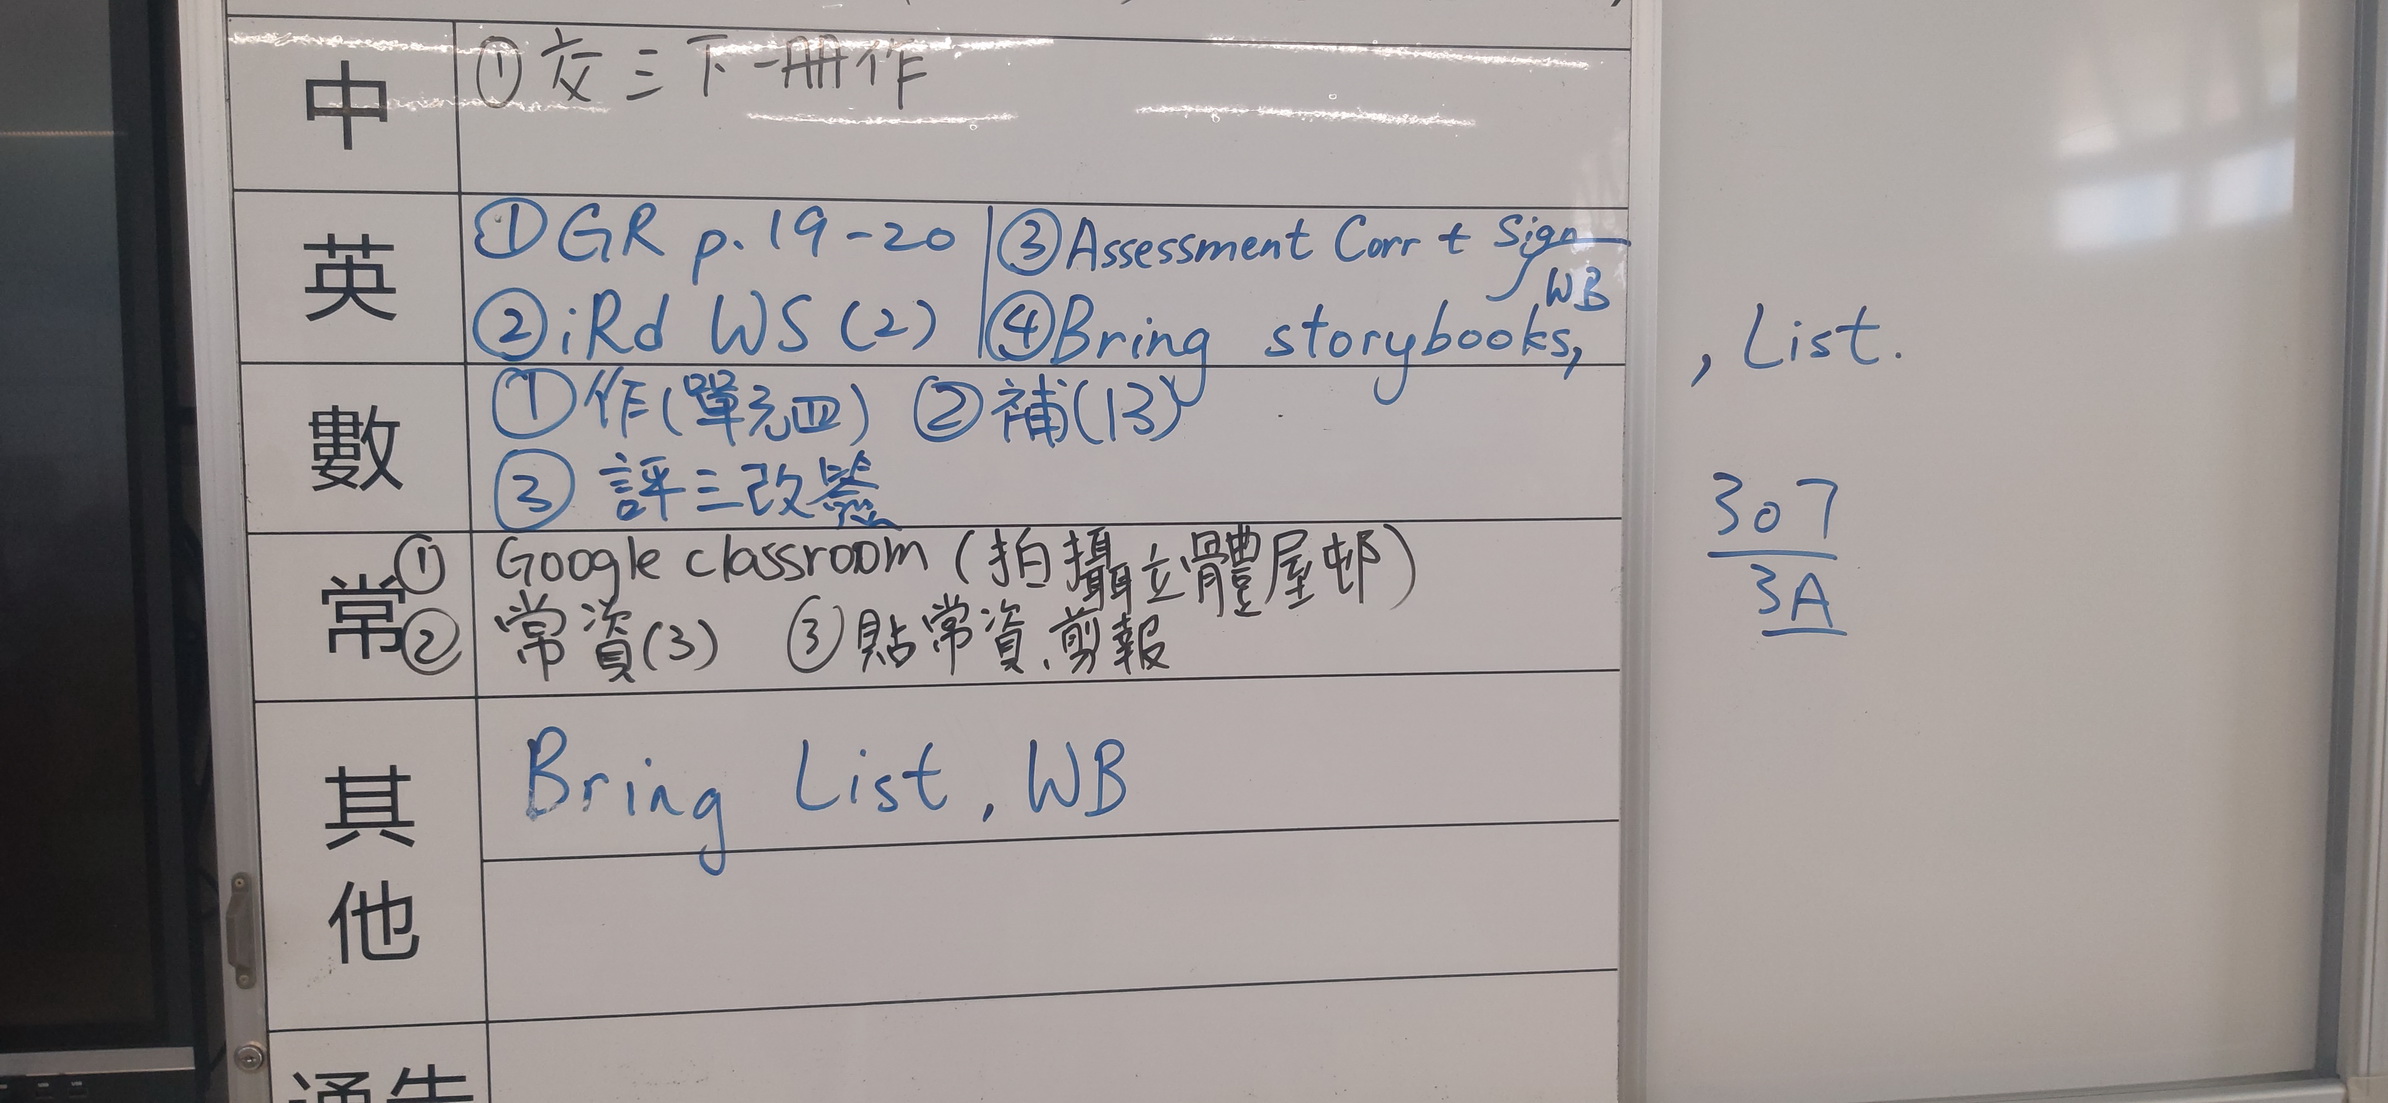 中
①交三下一冊作
英
①GR p.19-20 ③Assessment Corr + Sign
②iRd WS (2) ④Bring storybooks, WB, List.
數
①作(單元四) ②補(13)
③評三改
常
① Google classroom (拍攝立體屋邨)
② 常資(3) ③貼常資、剪報
其他
Bring List, WB
通告
307
3A